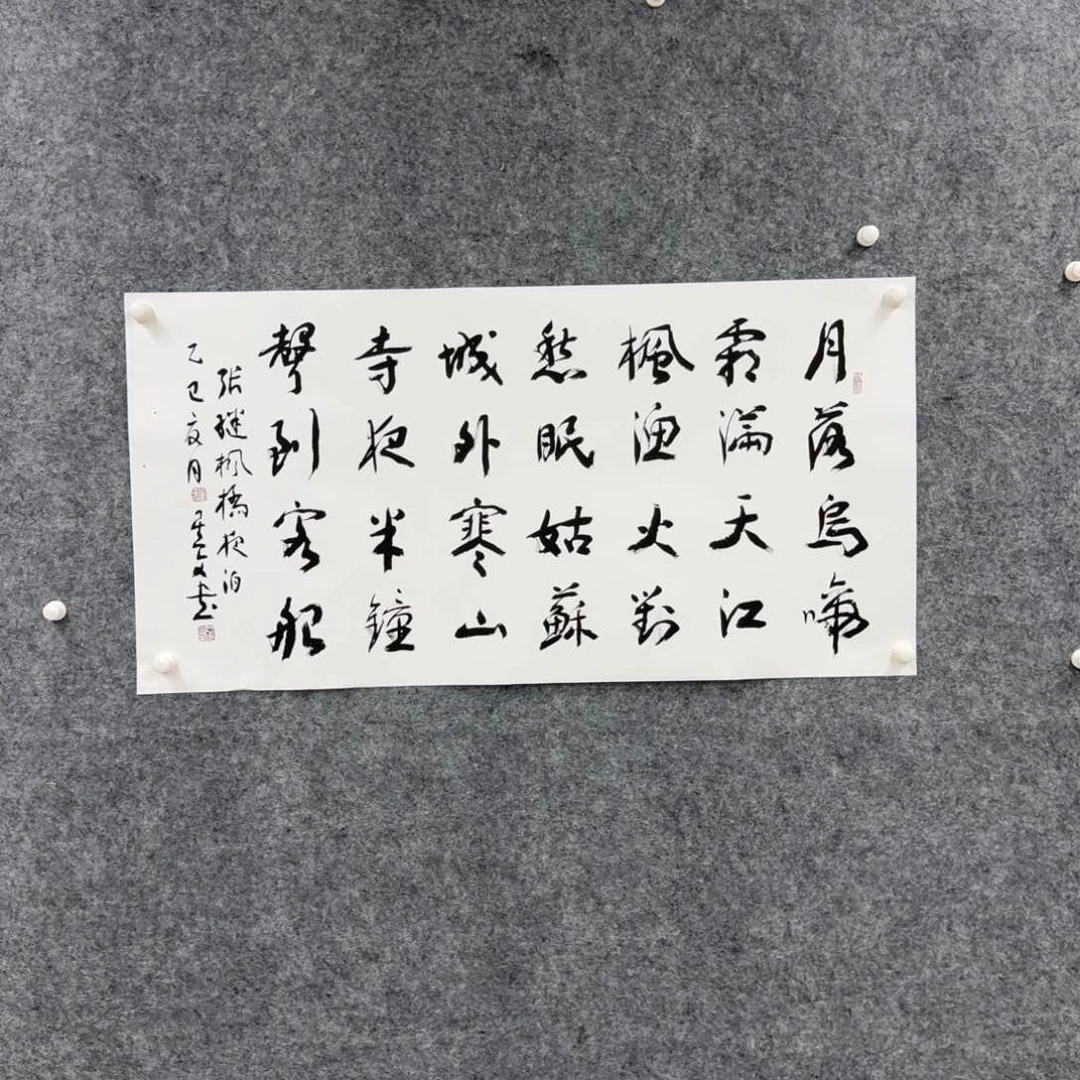 月落烏啼
霜滿天江
楓漁火對
愁眠姑蘇
城外寒山
寺夜半鐘
聲到客船
張繼楓橋夜泊
乙巳夏月 書